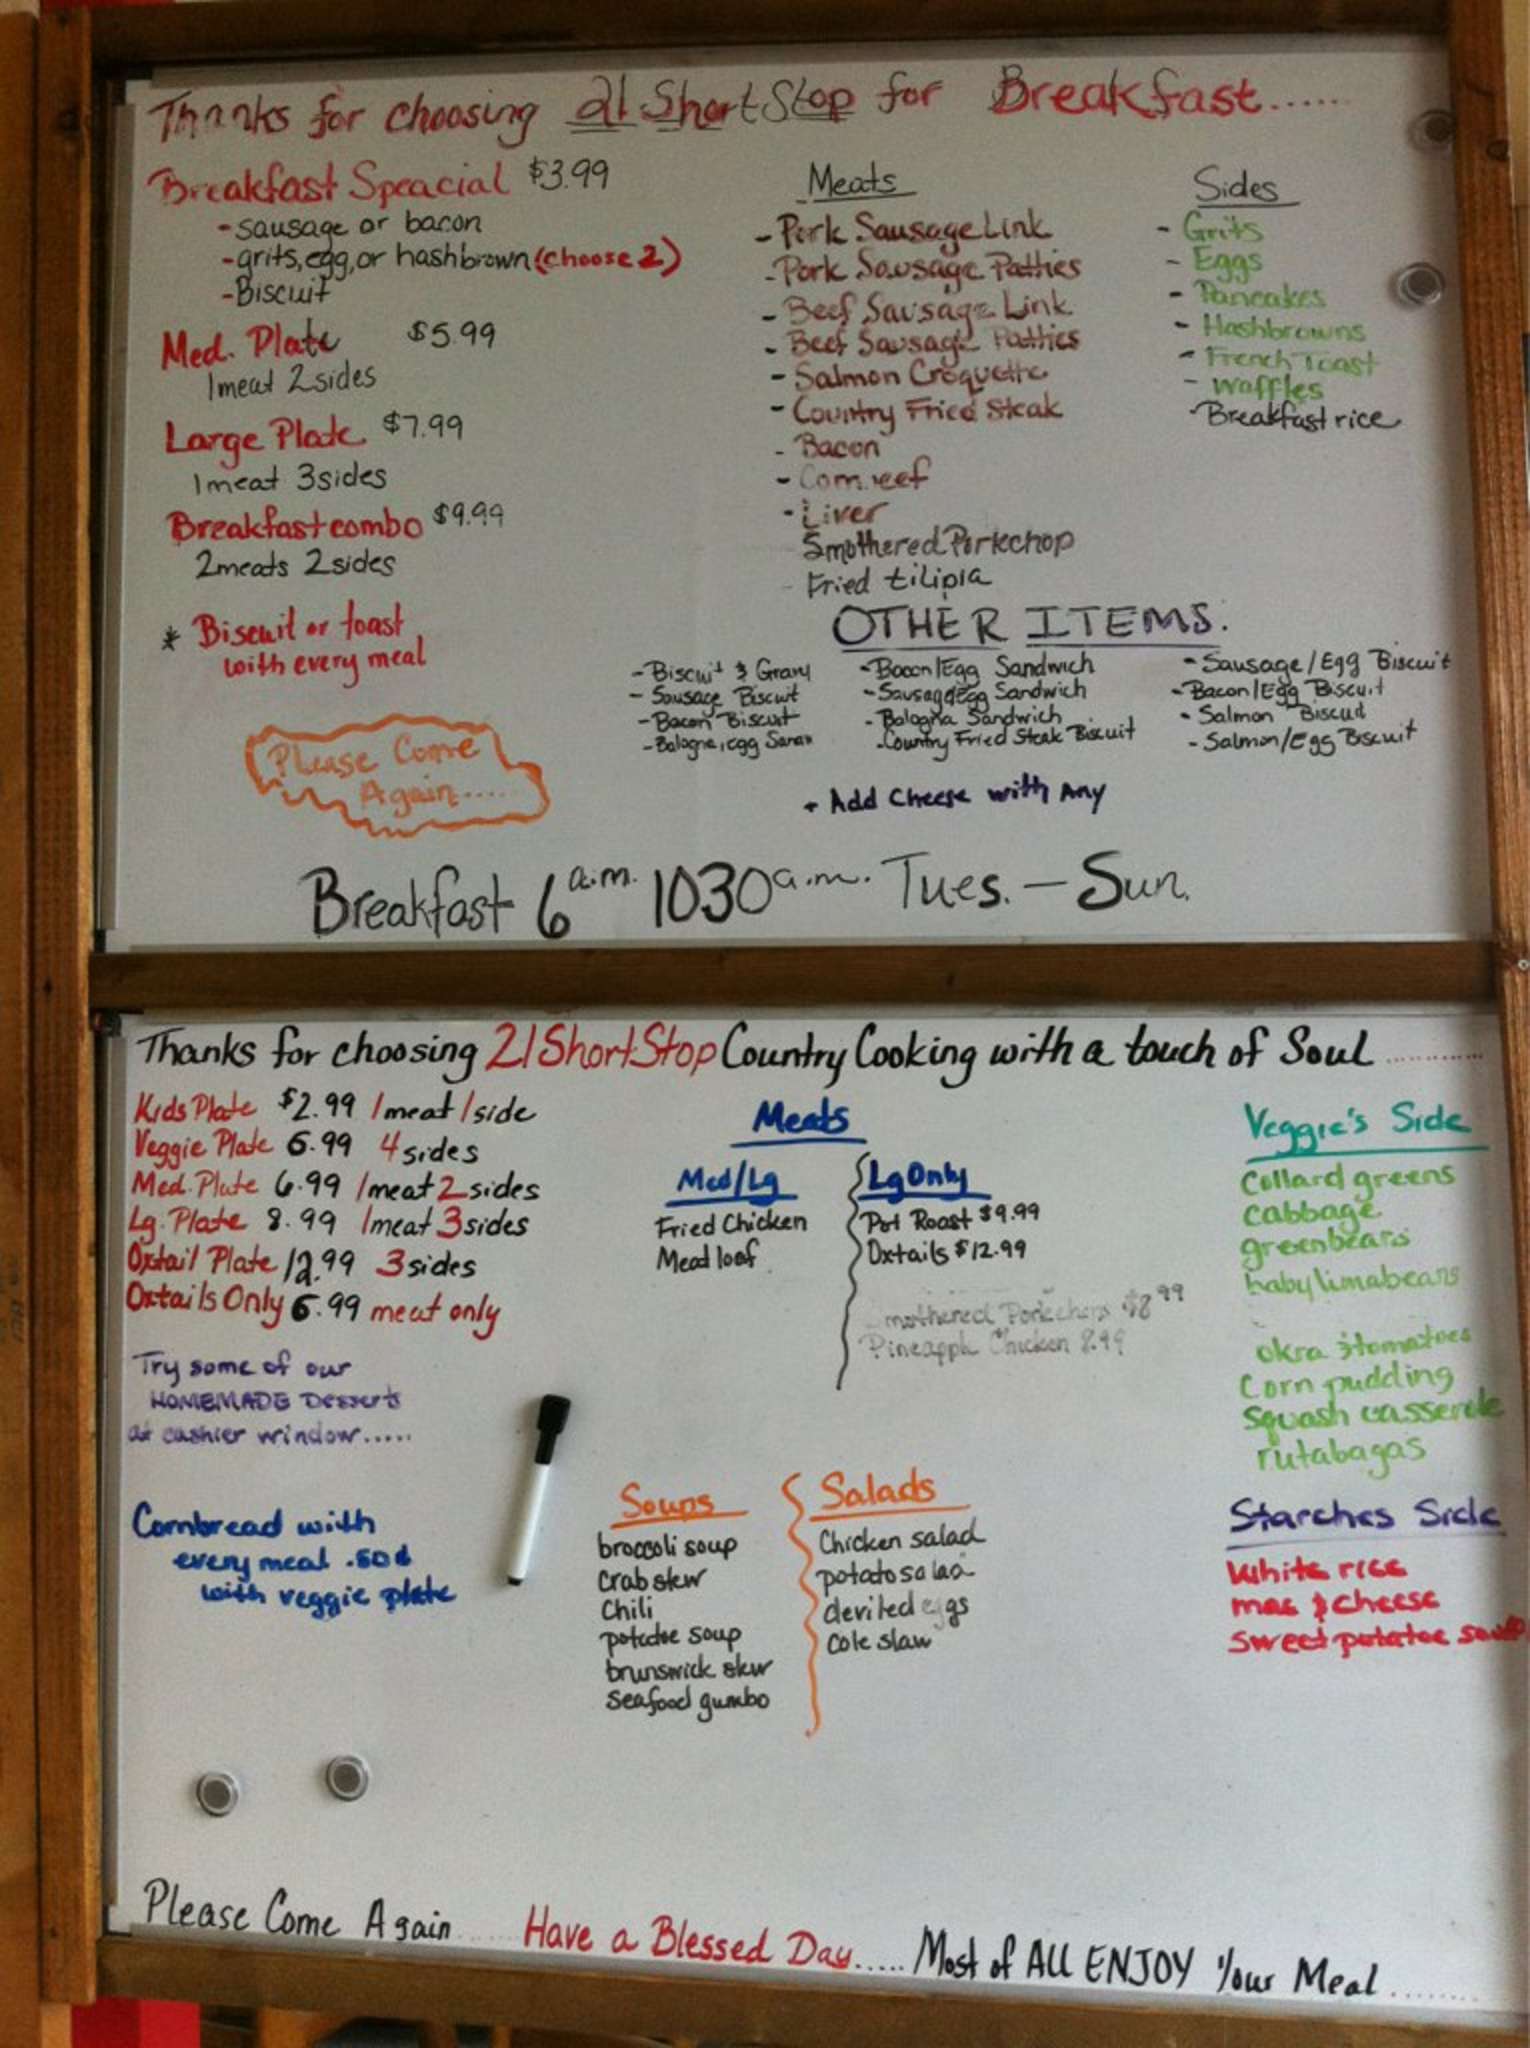 Thanks for choosing 21 Short Stop for Breakfast......
Breakfast Speacial $3.99
-sausage or bacon
-grits, egg, or hashbrown (choose 2)
-Biscuit
Med. Plate $5.99
1 meat 2 sides
Large Plate $7.99
1 meat 3 sides
Breakfast combo $9.99
2 meats 2 sides
* Biscuit or toast
with every meal
Please Come
Again......
Meats
- Pork Sausage Link
- Pork Sausage Patties
- Beef Sausage Link
- Beef Sausage Patties
- Salmon Croquette
- Country Fried Steak
- Bacon
- Liver
Smothered Porkchop
- Fried tilipia
Sides
- Grits
- Eggs
- Pancakes
- Hashbrowns
- French Toast
- Waffles
- Breakfast rice
OTHER ITEMS.
- Biscuit & Gravy
- Sausage Biscuit
- Bacon Biscuit
- Bologna, egg
- Bacon/Egg Sandwich
- Sausage/Egg Sandwich
- Bologna Sandwich
- Country Fried Steak Biscuit
- Sausage/Egg Biscuit
- Bacon/Egg Biscuit
- Salmon Biscuit
- Salmon/Egg Biscuit
+ Add Cheese with Any
Breakfast 6 a.m. 1030 a.m. Tues. - Sun.
Thanks for choosing 21 Short Stop Country Cooking with a touch of Soul............
Kids Plate $2.99 1 meat 1 side
Veggie Plate 6.99 4 sides
Med. Plate 6.99 1 meat 2 sides
Lg. Plate 8.99 1 meat 3 sides
Oxtail Plate 12.99 3 sides
Oxtails Only 6.99 meat only
Try some of our
HOMEMADE Desserts
at cashier window.....
Cornbread with
every meal .50¢
with veggie plate
Meats
Med/Lg
Fried Chicken
Meat loaf
Lg Only
Pot Roast $9.99
Oxtails $12.99
Porkchops $8.99
Pineapple Chicken 8.99
Soups
broccoli soup
Crab stew
Chili
potatoe soup
brunswick stew
seafood gumbo
Salads
Chicken salad
potato salad
deviled eggs
Cole slaw
Veggie's Side
Collard greens
cabbage
greenbeans
baby limabeans
okra & tomatoes
Corn pudding
squash casserole
rutabagas
Starches Side
White rice
mac & cheese
Sweet potatoe
Please Come Again...... Have a Blessed Day..... Most of ALL ENJOY Your Meal........